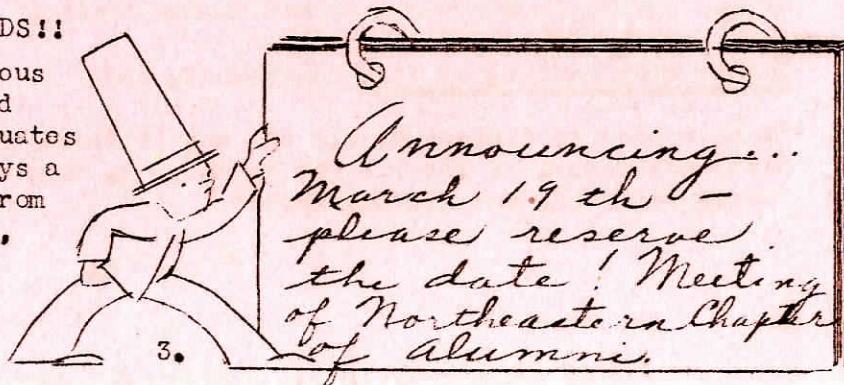 DS!!
ous
d
uates
ys a
rom
.
Announcing...
March 19th -
please reserve
the date! Meeting
of Northeastern Chapter
of alumni.
3.